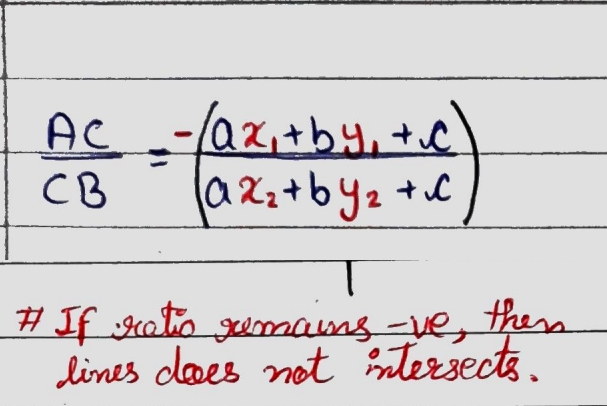 AC/CB = -(ax₁+by₁+c / ax₂+by₂+c)
# If ratio remains -ve, then
lines does not intersects.